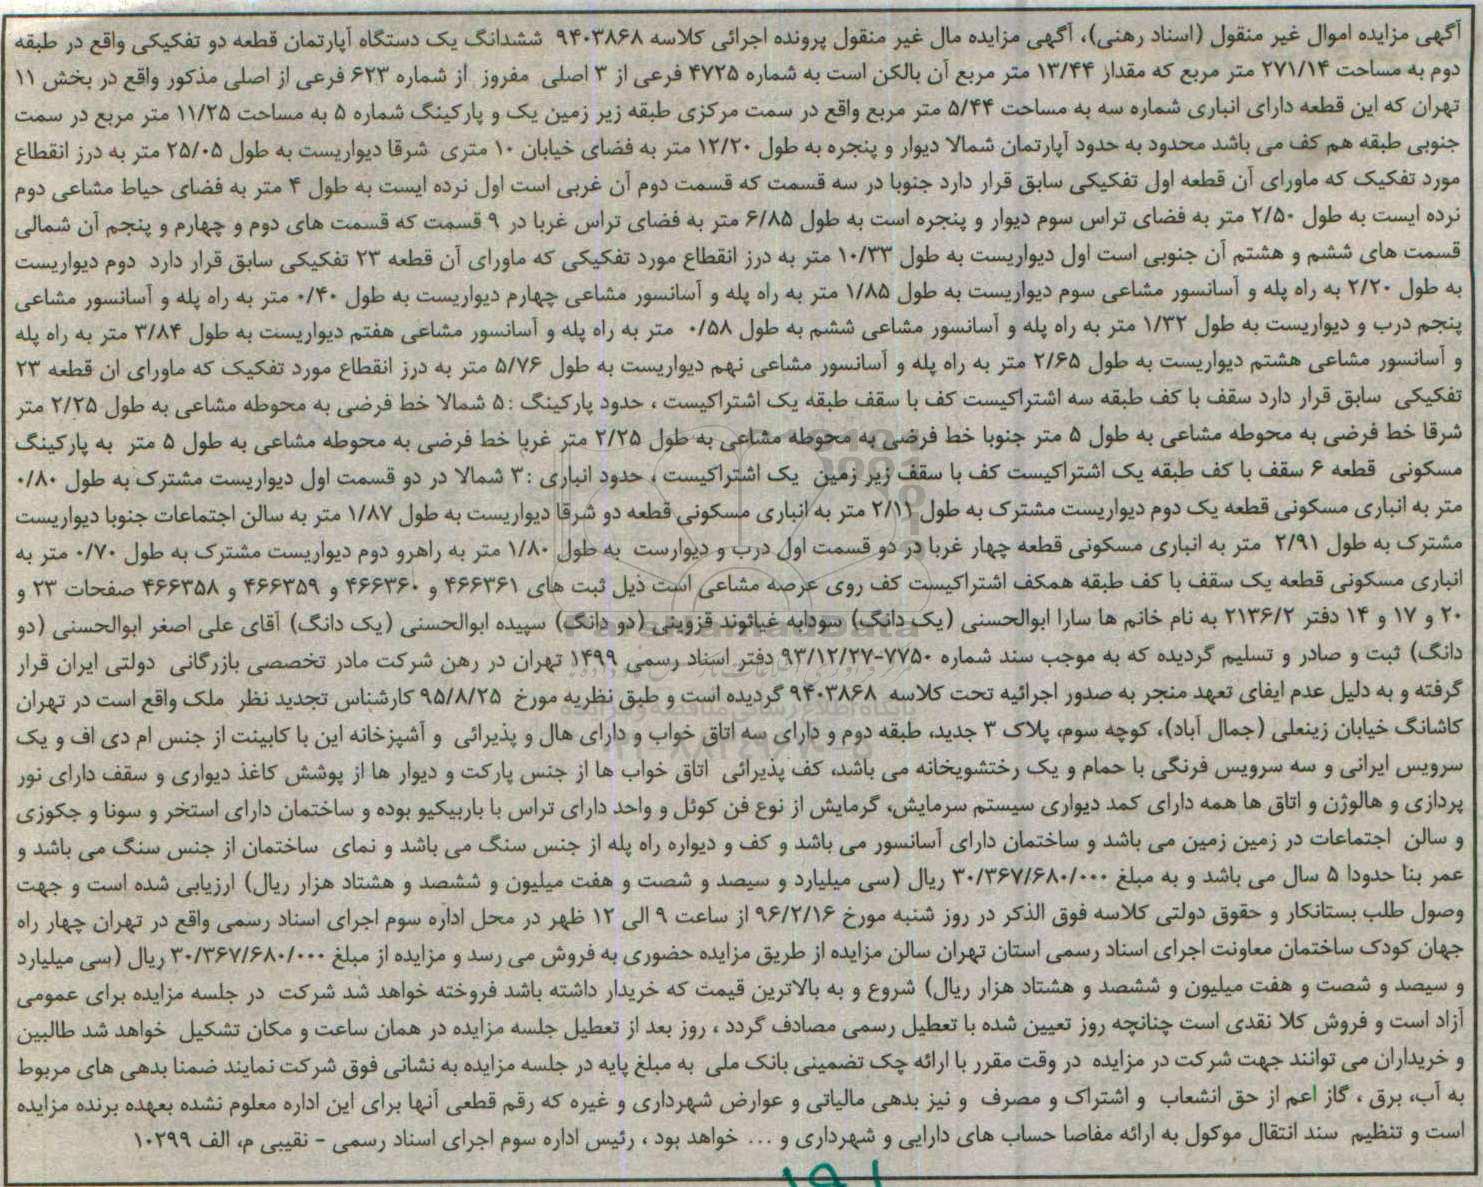 آگهی مزایده اموال غیر منقول (اسناد رهنی)، آگهی مزایده مال غیر منقول پرونده اجرائی کلاسه ۹۴۰۳۸۶۸ ششدانگ یک دستگاه آپارتمان قطعه دو تفکیکی واقع در طبقه
دوم به مساحت ۲۷۱/۱۴ متر مربع که مقدار ۱۳/۴۴ متر مربع آن بالکن است به شماره ۴۷۲۵ فرعی از ۳ اصلی مفروز از شماره ۶۲۳ فرعی از اصلی مذکور واقع در بخش ۱۱
تهران که این قطعه دارای انباری شماره سه به مساحت ۵/۴۴ متر مربع واقع در سمت مرکزی طبقه زیر زمین یک و پارکینگ شماره ۵ به مساحت ۱۱/۲۵ متر مربع در سمت
جنوبی طبقه هم کف می باشد محدود به حدود آپارتمان شمالا دیوار و پنجره به طول ۱۲/۲۰ متر به فضای خیابان ۱۰ متری شرقا دیواریست به طول ۲۵/۰۵ متر به درز انقطاع
مورد تفکیک که ماورای آن قطعه اول تفکیکی سابق قرار دارد جنوبا در سه قسمت که قسمت دوم آن غربی است اول نرده ایست به طول ۴ متر به فضای حیاط مشاعی دوم
نرده ایست به طول ۲/۵۰ متر به فضای تراس سوم دیوار و پنجره است به طول ۶/۸۵ متر به فضای تراس غربا در ۹ قسمت که قسمت های دوم و چهارم و پنجم آن شمالی
قسمت های ششم و هشتم آن جنوبی است اول دیواریست به طول ۱۰/۳۳ متر به درز انقطاع مورد تفکیکی که ماورای آن قطعه ۲۳ تفکیکی سابق قرار دارد دوم دیواریست
به طول ۲/۲۰ به راه پله و آسانسور مشاعی سوم دیواریست به طول ۱/۸۵ متر به راه پله و آسانسور مشاعی چهارم دیواریست به طول ۰/۴۰ متر به راه پله و آسانسور مشاعی
پنجم درب و دیواریست به طول ۱/۳۲ متر به راه پله و آسانسور مشاعی ششم به طول ۰/۵۸ متر به راه پله و آسانسور مشاعی هفتم دیواریست به طول ۳/۸۴ متر به راه پله
و آسانسور مشاعی هشتم دیواریست به طول ۲/۶۵ متر به راه پله و آسانسور مشاعی نهم دیواریست به طول ۵/۷۶ متر به درز انقطاع مورد تفکیک که ماورای ان قطعه ۲۳
تفکیکی سابق قرار دارد سقف با کف طبقه سه اشتراکیست کف با سقف طبقه یک اشتراکیست ، حدود پارکینگ ۵: شمالا خط فرضی به محوطه مشاعی به طول ۲/۲۵ متر
شرقا خط فرضی به محوطه مشاعی به طول ۵ متر جنوبا خط فرضی به محوطه مشاعی به طول ۲/۲۵ متر غربا خط فرضی به محوطه مشاعی به طول ۵ متر به پارکینگ
مسکونی قطعه ۶ سقف با کف طبقه یک اشتراکیست کف با سقف زیر زمین یک اشتراکیست ، حدود انباری ۳: شمالا در دو قسمت اول دیواریست مشترک به طول ۰/۸۰
متر به انباری مسکونی قطعه یک دوم دیواریست مشترک به طول ۲/۱۱ متر به انباری مسکونی قطعه دو شرقا دیواریست به طول ۱/۸۷ متر به سالن اجتماعات جنوبا دیواریست
مشترک به طول ۲/۹۱ متر به انباری مسکونی قطعه چهار غربا در دو قسمت اول درب و دیوارست به طول ۱/۸۰ متر به راهرو دوم دیواریست مشترک به طول ۰/۷۰ متر به
انباری مسکونی قطعه یک سقف با کف طبقه همکف اشتراکیست کف روی عرصه مشاعی است ذیل ثبت های ۴۶۶۳۶۱ و ۴۶۶۳۶۰ و ۴۶۶۳۵۹ و ۴۶۶۳۵۸ صفحات ۲۳ و
۲۰ و ۱۷ و ۱۴ دفتر ۲۱۳۶/۲ به نام خانم ها سارا ابوالحسنی (یک دانگ) سودابه غیاثوند قزوینی (دو دانگ) سپیده ابوالحسنی (یک دانگ) آقای علی اصغر ابوالحسنی (دو
دانگ) ثبت و صادر و تسلیم گردیده که به موجب سند شماره ۷۷۵۰-۹۳/۱۲/۲۷ دفتر اسناد رسمی ۱۴۹۹ تهران در رهن شرکت مادر تخصصی بازرگانی دولتی ایران قرار
گرفته و به دلیل عدم ایفای تعهد منجر به صدور اجرائیه تحت کلاسه ۹۴۰۳۸۶۸ گردیده است و طبق نظریه مورخ ۹۵/۸/۲۵ کارشناس تجدید نظر ملک واقع است در تهران
کاشانگ خیابان زینعلی (جمال آباد)، کوچه سوم، پلاک ۳ جدید، طبقه دوم و دارای سه اتاق خواب و دارای هال و پذیرائی و آشپزخانه این با کابینت از جنس ام دی اف و یک
سرویس ایرانی و سه سرویس فرنگی با حمام و یک رختشویخانه می باشد، کف پذیرائی اتاق خواب ها از جنس پارکت و دیوار ها از پوشش کاغذ دیواری و سقف دارای نور
پردازی و هالوژن و اتاق ها همه دارای کمد دیواری سیستم سرمایش، گرمایش از نوع فن کوئل و واحد دارای تراس با باربیکیو بوده و ساختمان دارای استخر و سونا و جکوزی
و سالن اجتماعات در زمین زمین می باشد و ساختمان دارای آسانسور می باشد و کف و دیواره راه پله از جنس سنگ می باشد و نمای ساختمان از جنس سنگ می باشد و
عمر بنا حدودا ۵ سال می باشد و به مبلغ ۳۰/۳۶۷/۶۸۰/۰۰۰ ریال (سی میلیارد و سیصد و شصت و هفت میلیون و ششصد و هشتاد هزار ریال) ارزیابی شده است و جهت
وصول طلب بستانکار و حقوق دولتی کلاسه فوق الذکر در روز شنبه مورخ ۹۶/۲/۱۶ از ساعت ۹ الی ۱۲ ظهر در محل اداره سوم اجرای اسناد رسمی واقع در تهران چهار راه
جهان کودک ساختمان معاونت اجرای اسناد رسمی استان تهران سالن مزایده از طریق مزایده حضوری به فروش می رسد و مزایده از مبلغ ۳۰/۳۶۷/۶۸۰/۰۰۰ ریال (سی میلیارد
و سیصد و شصت و هفت میلیون و ششصد و هشتاد هزار ریال) شروع و به بالاترین قیمت که خریدار داشته باشد فروخته خواهد شد شرکت در جلسه مزایده برای عمومی
آزاد است و فروش کلا نقدی است چنانچه روز تعیین شده با تعطیل رسمی مصادف گردد ، روز بعد از تعطیل جلسه مزایده در همان ساعت و مکان تشکیل خواهد شد طالبین
و خریداران می توانند جهت شرکت در مزایده در وقت مقرر با ارائه چک تضمینی بانک ملی به مبلغ پایه در جلسه مزایده به نشانی فوق شرکت نمایند ضمنا بدهی های مربوط
به آب، برق ، گاز اعم از حق انشعاب و اشتراک و مصرف و نیز بدهی مالیاتی و عوارض شهرداری و غیره که رقم قطعی آنها برای این اداره معلوم نشده بعهده برنده مزایده
است و تنظیم سند انتقال موکول به ارائه مفاصا حساب های دارایی و شهرداری و ... خواهد بود ، رئیس اداره سوم اجرای اسناد رسمی - نقیبی م، الف ۱۰۲۹۹